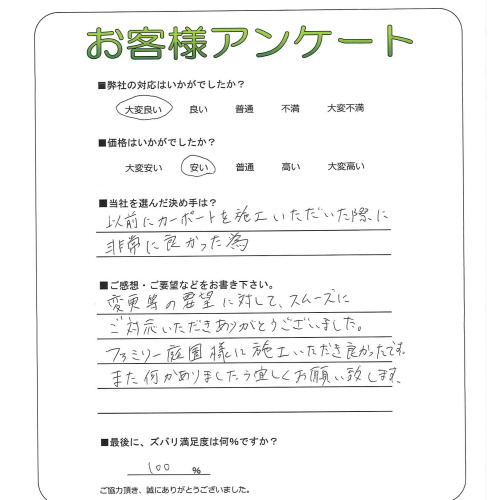 お客様アンケート
■弊社の対応はいかがでしたか？
大変良い 良い 普通 不満 大変不満
■価格はいかがでしたか？
大変安い 安い 普通 高い 大変高い
■当社を選んだ決め手は？
以前にカーポートを施工いただいた際に
非常に良かった為
■ご感想・ご要望などをお書き下さい。
変更等の要望に対して、スムーズに
ご対応いただきありがとうございました。
ファミリー庭園様に施工いただき良かったです。
また何かありましたら宜しくお願い致します。
■最後に、ズバリ満足度は何%ですか？
100 %
ご協力頂き、誠にありがとうございました。